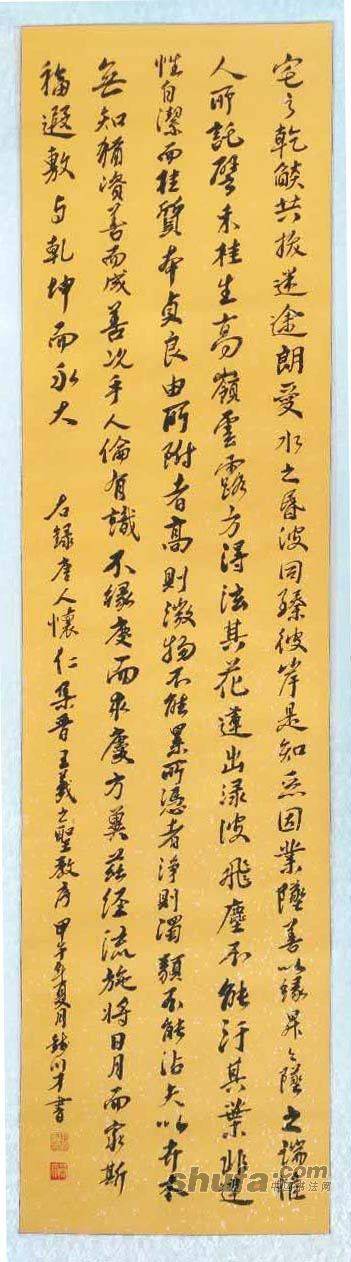 宅之乾燄共拔迷途朗愛水之昏波同臻彼岸是知惡因業墜善以緣昇々墜之端惟
人所託譬夫桂生高嶺雲露方得泫其花蓮出淥波飛塵不能汙其葉非蓮
性自潔而桂質本貞良由所附者高則微物不能累所憑者淨則濁類不能沾夫以卉木
無知猶資善而成善況乎人倫有識不緣慶而求慶方冀茲經流施將日月而窮斯
福遐敷与乾坤而永大
右錄唐人懷仁集晉王羲之聖教序 甲午年夏月 書
shufa.com
中国书法网